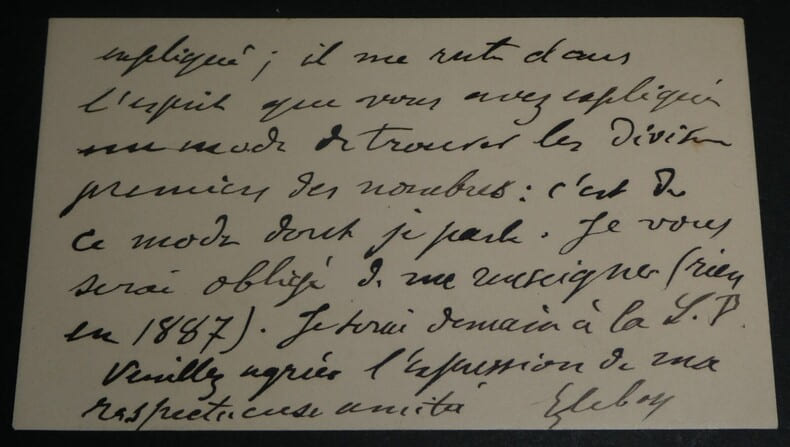 expliqué ; il me reste dans
l'esprit que vous avez expliqué
un mode de trouver les diviseurs
premiers des nombres : c'est de
ce mode dont je parle. Je vous
serai obligé de me renseigner (rien
en 1887). Je serai demain à la S. P.
Veuillez agréer l'expression de ma
respectueuse amitié